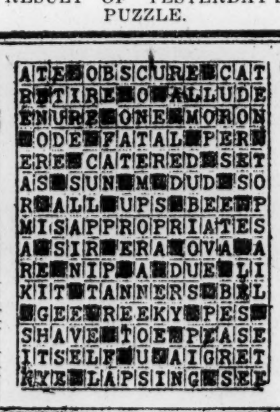 RESULT OF YESTERDAY'S
PUZZLE.
ATE OBSCURE CAT
RETIRE O ALLUDE
ENURE ONE MORON
ODE FATAL PER
ERE CATERED SET
AS SUN M DUD SO
R ALL UPS BEE P
MISAPPROPRIATES
A SIR ERA OVA A
RE NIP A DUE LI
KIT TANNERS BEL
GEE REEKY PES
SHAVE TOE PEASE
ITSELF U AIGRET
NYE LAPSING SEE